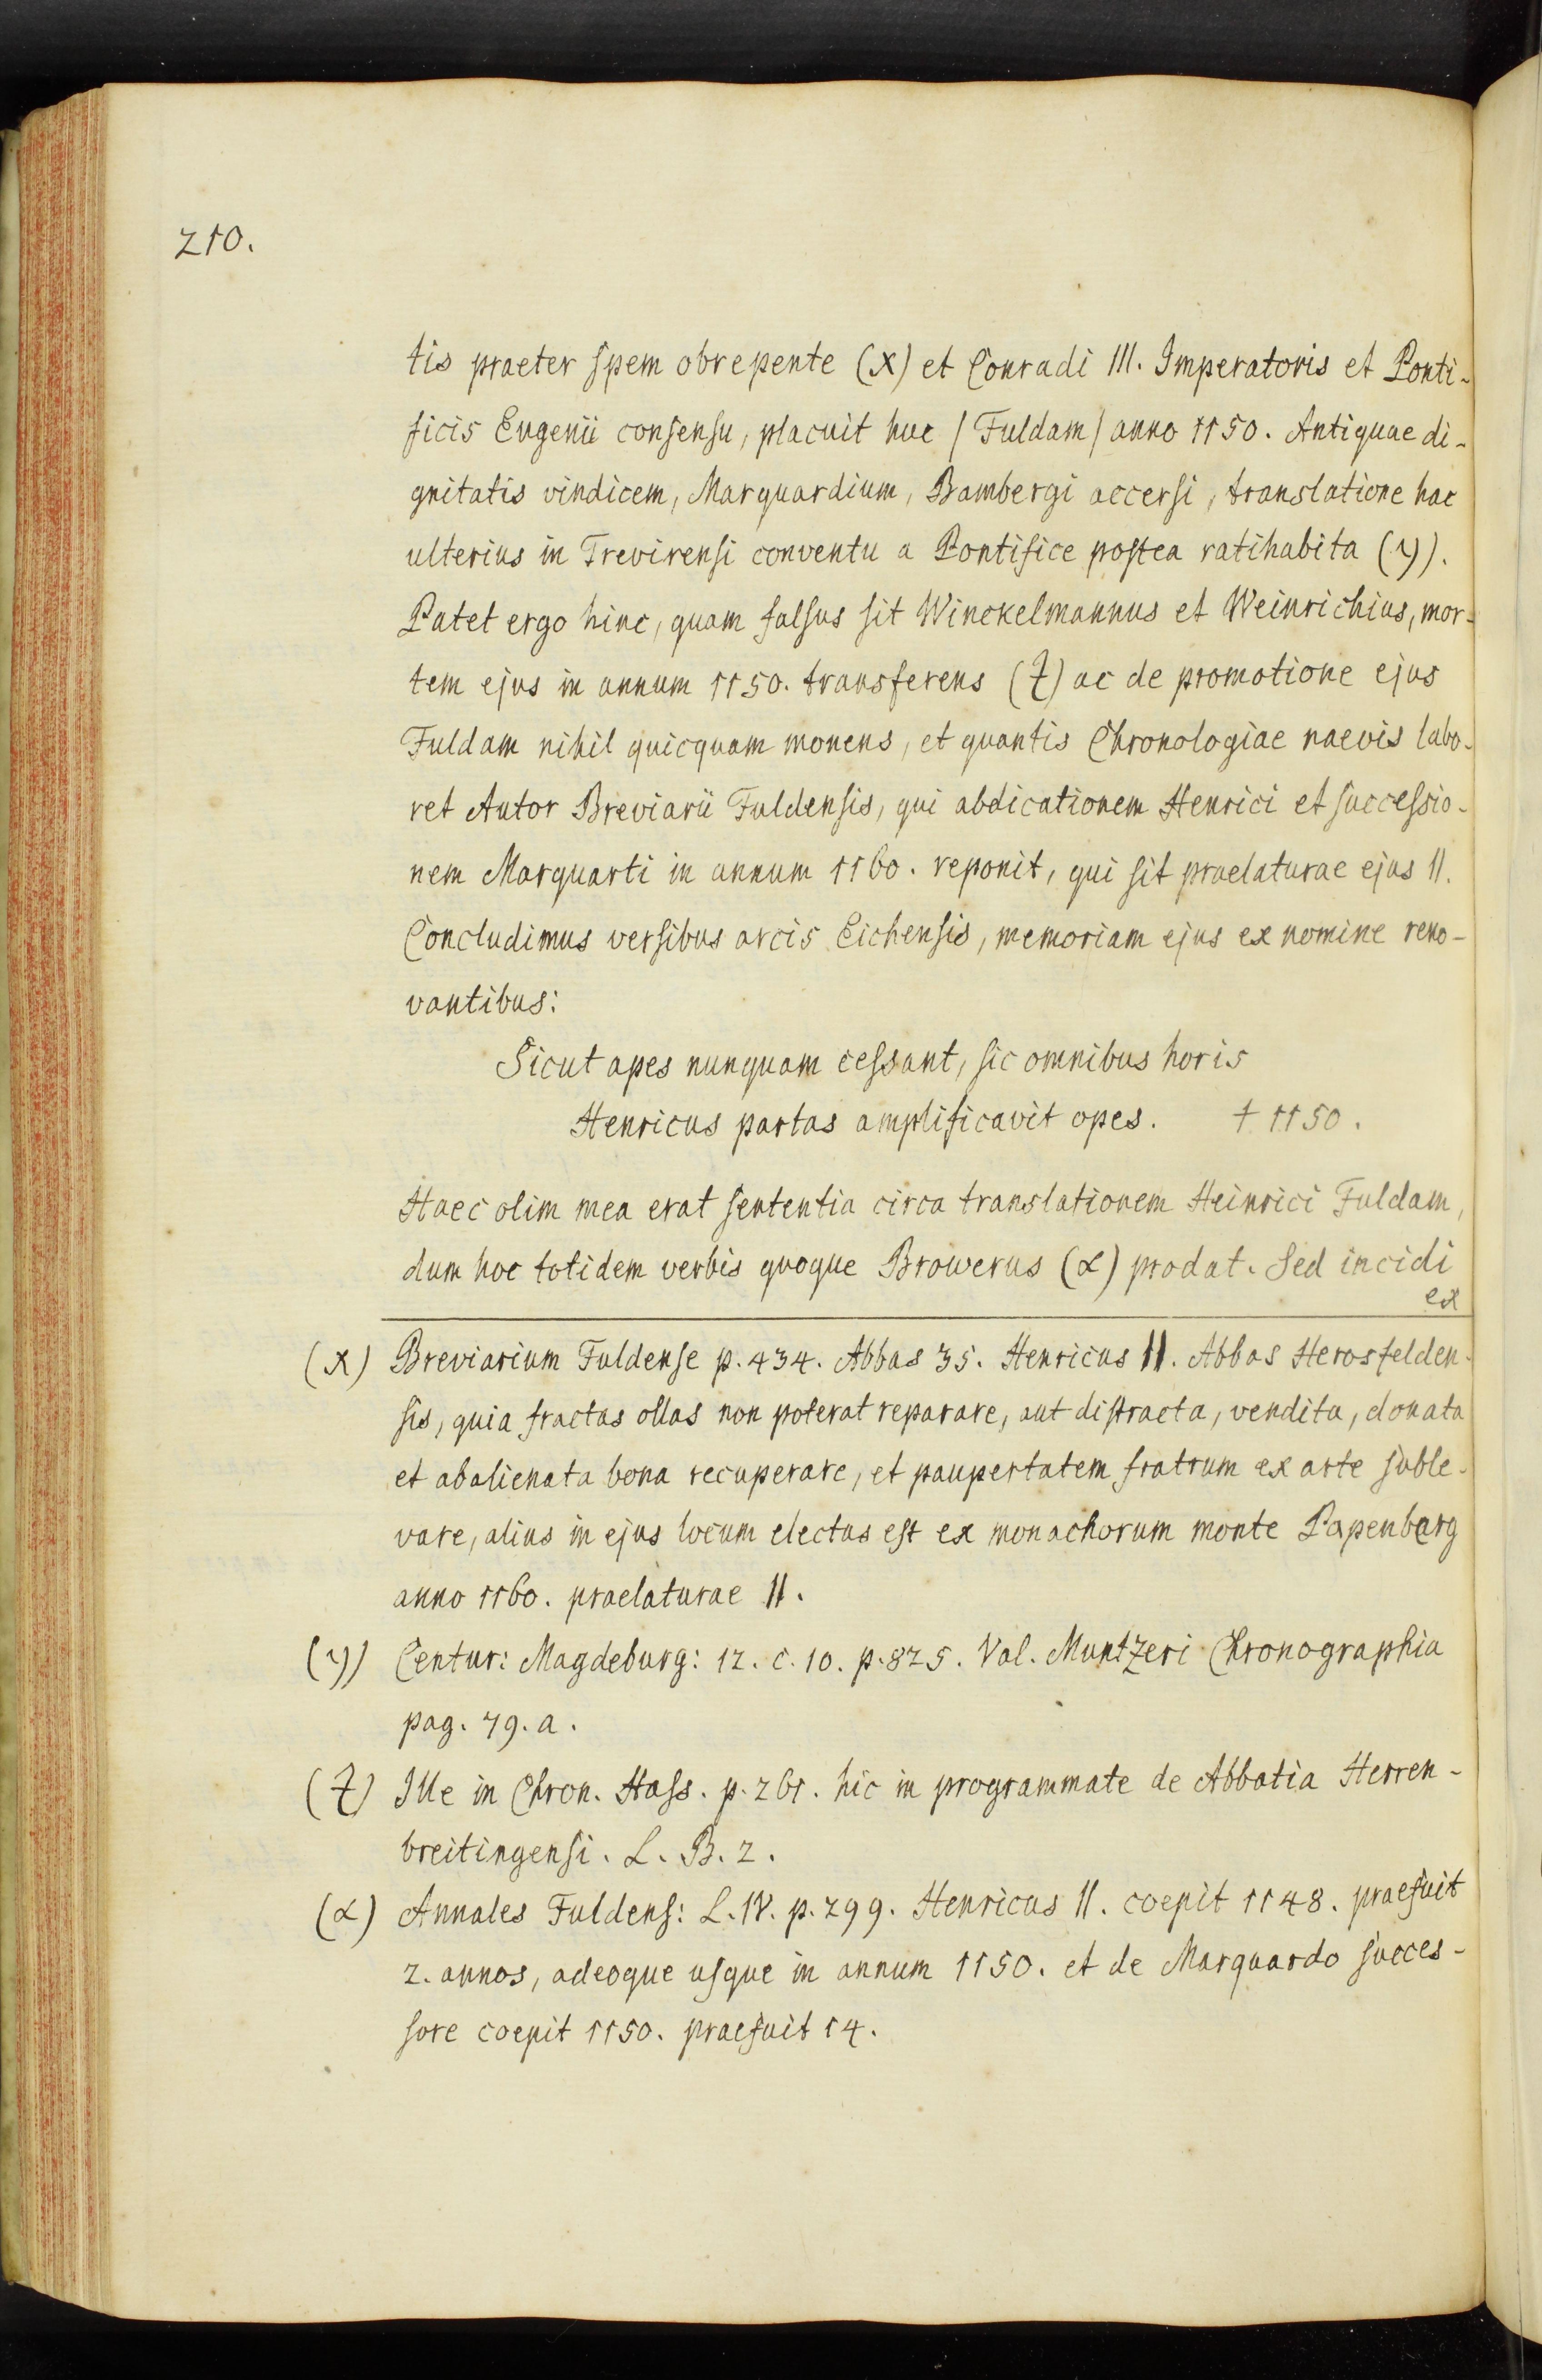 210.
tis praeter spem obrepente (x) et Conradi III. Imperatoris et Ponti-
ficis Eugenii consensu, placuit huc / Fuldam / anno 1150. Antiquae di-
gnitatis vindicem, Marquardium, Bambergi accersi, translatione hac
ulterius in Trevirensi conventu a Pontifice postea ratihabita (y).
Patet ergo hinc, quam falsus sit Winckelmannus et Weinrichius, mor-
tem ejus in annum 1150. transferens (z) ac de promotione ejus
Fuldam nihil quicquam monens, et quantis Chronologiae naevis labo-
ret Autor Breviarii Fuldensis, qui abdicationem Henrici et successio-
nem Marquarti in annum 1160. reponit, qui sit praelaturae ejus II.
Concludimus versibus arcis Eichensis, memoriam ejus ex nomine reno-
vantibus:
Sicut apes nunquam cessant, sic omnibus horis
Henricus partas amplificavit opes. † 1150.
Haec olim mea erat sententia circa translationem Heinrici Fuldam,
dum hoc totidem verbis quoque Browerus (α) prodat. Sed incidi
ex
(x) Breviarium Fuldense p. 434. Abbas 35. Henricus II. Abbas Herosfelden-
sis, quia fractas ollas non poterat reparare, aut distracta, vendita, donata
et abalienata bona recuperare, et paupertatem fratrum ex arte suble-
vare, alius in ejus locum electus est ex monachorum monte Papenbarg
anno 1160. praelaturae II.
(y) Centur: Magdeburg: 12. c. 10. p. 825. Val. Muntzeri Chronographia
pag. 79. a.
(z) Ille in Chron. Hass. p. 261. hic in programmate de Abbatia Herren-
breitingensi. L. B. 2.
(α) Annales Fuldens: L. IV. p. 299. Henricus II. coepit 1148. praefuit
2. annos, adeoque usque in annum 1150. et de Marquardo succes-
sore coepit 1150. praefuit 14.